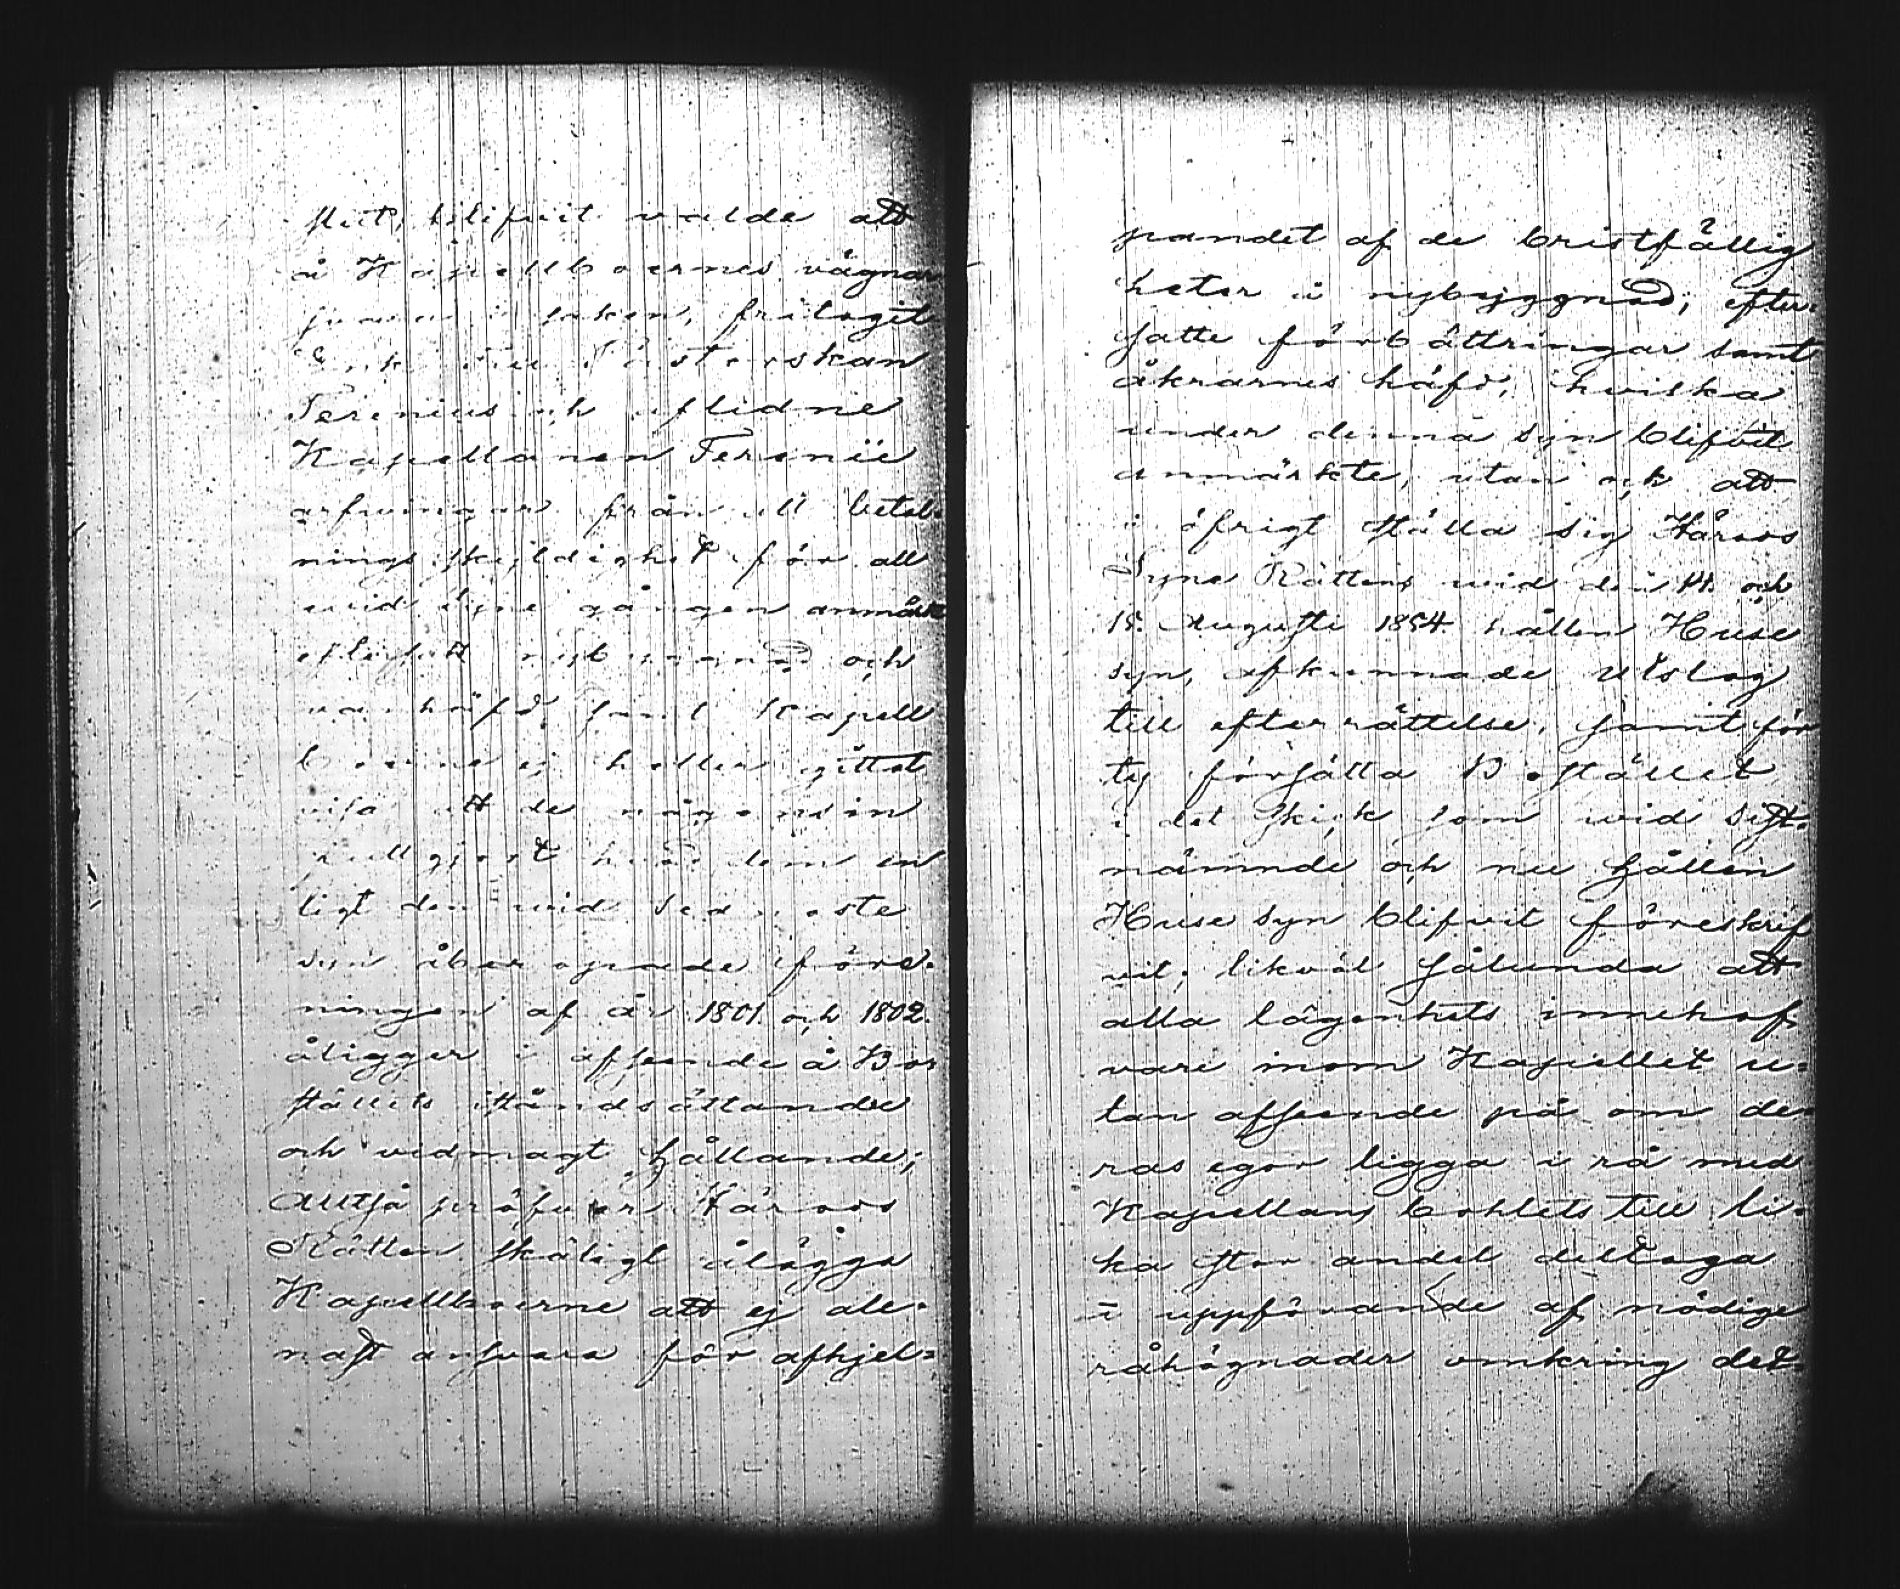 blifvit valde att
å Kapellboernes vägnar
svara i saken, fritagit
Enkefru Pastorskan
Ferenius och aflidne
Kapellanen Ferenii
arfvingar från all betal-
nings skyldighet för all
wid syne gången anmärkt
eftersatt nybyggnad och
vanhäfd, samt Kapell
boerne ej heller gittat
visa att de någonsin
fullgjort hvad dem en
ligt den wid sednaste
syn åberopade förord-
ningen af år 1801 och 1802.
åligger i afseende å Bo-
ställets iståndsättande
och vidmagt hållande;
Alltså pröfvar Härads
Rätten skäligt ålägga
Kapellboerne att ej ale-
nast ansvara för afhjel-
pandet af de bristfällig
heter å nybyggnad, efter-
satte förbättringar samt
åkrarnes häfd, hvilka
under denna syn blifvit
anmärkte, utan och att
i öfrigt ställa sig Härads
Syne Rättens wid den 14. och
15. Augusti 1854 hållen Huse
syn, afkunnade Utslag
till efterrättelse, samt för
ty försätta Bostället
i det skick som wid sist-
nämnde och nu hållen
Huse syn blifvit föreskrif
vit; likväl sålunda att
alla lägenhets innehaf-
vare inom Kapellet u-
tan afseende på om de-
ras egor ligga i rå med
Kapellans bohlets till li-
ka stor andel deltaga
i uppförande af nödige
råhägnader omkring det-